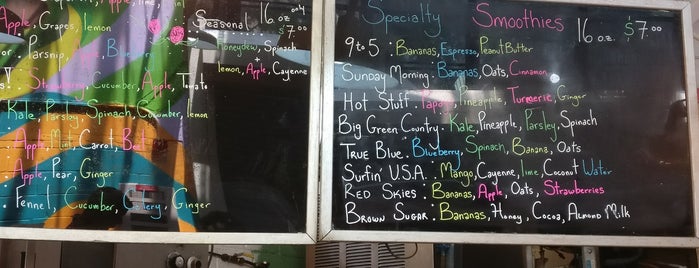 Apple, Grapes, lemon
Parsnip, Blueberry
Strawberry, Cucumber, Apple, Tomato
Kale, Parsley, Spinach, Cucumber, lemon
Apple, Mint, Carrot, Beet
Apple, Pear, Ginger
Fennel, Cucumber, Celery, Ginger
Seasonal 16 oz $7.00
Honeydew, Spinach
+
lemon, Apple, Cayenne
Specialty Smoothies 16 oz. $7.00
9 to 5: Bananas, Espresso, Peanut Butter
Sunday Morning: Bananas, Oats, Cinnamon
Hot Stuff: Papaya, Pineapple, Turmeric, Ginger
Big Green Country: Kale, Pineapple, Parsley, Spinach
True Blue: Blueberry, Spinach, Banana, Oats
Surfin' U.S.A.: Mango, Cayenne, lime, Coconut Water
Red Skies: Bananas, Apple, Oats, Strawberries
Brown Sugar: Bananas, Honey, Cocoa, Almond Milk